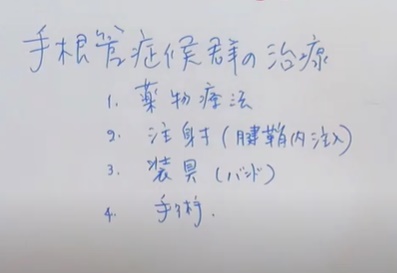 手根管症候群の治療
1. 薬物療法
2. 注射(腱鞘内注入)
3. 装具(バンド)
4. 手術.